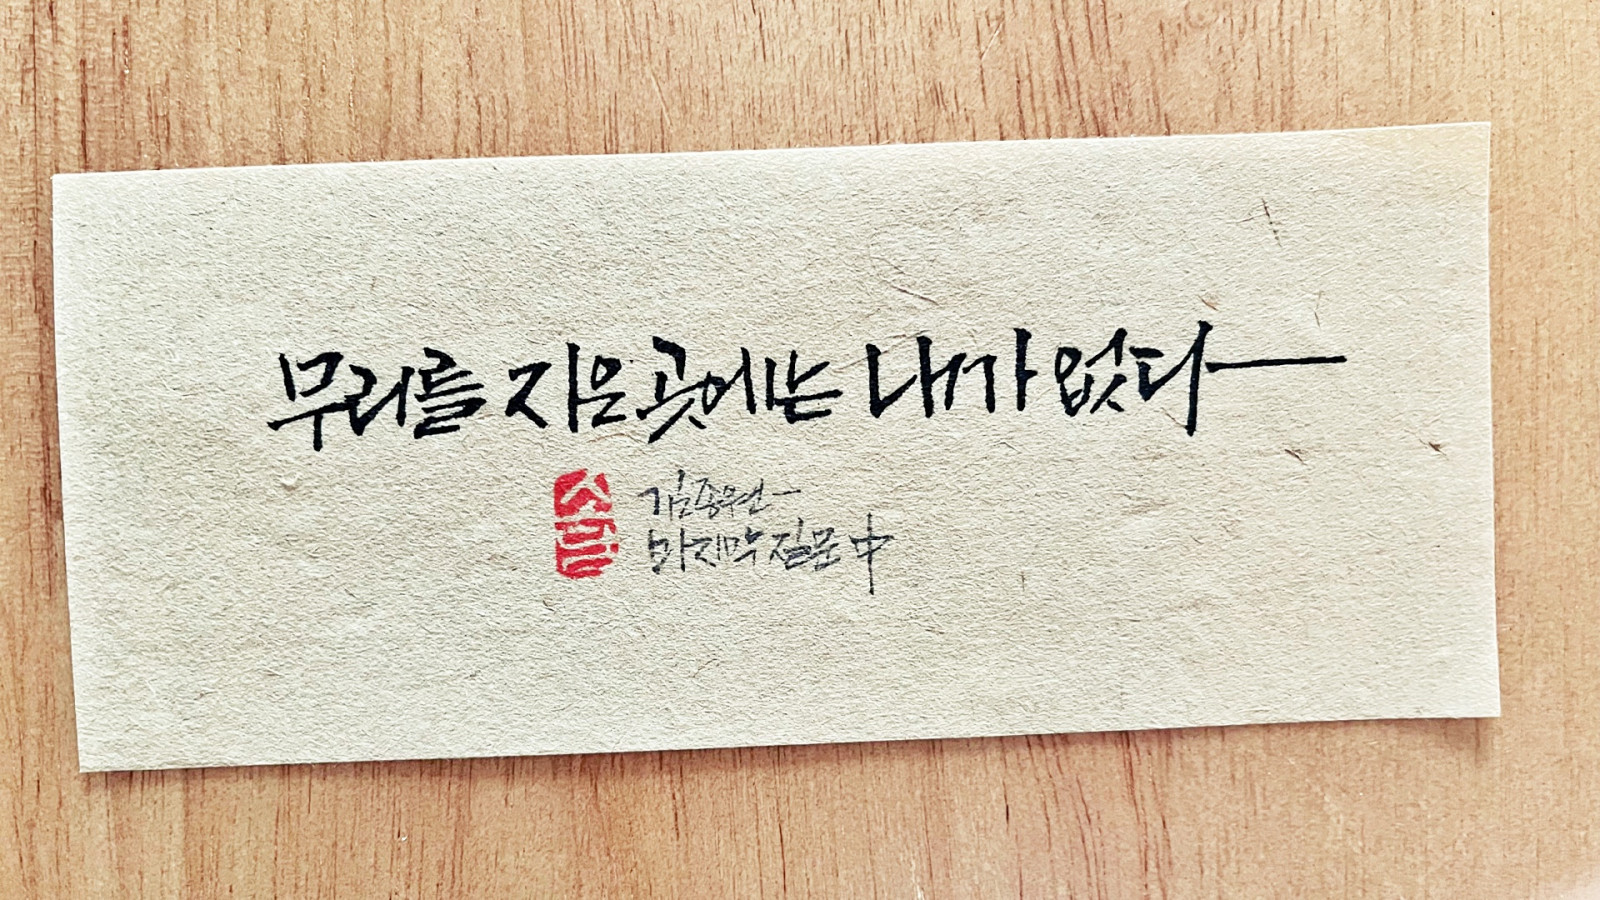 무리를 지은 곳에는 내가 없다
김종원
마지막 질문 中